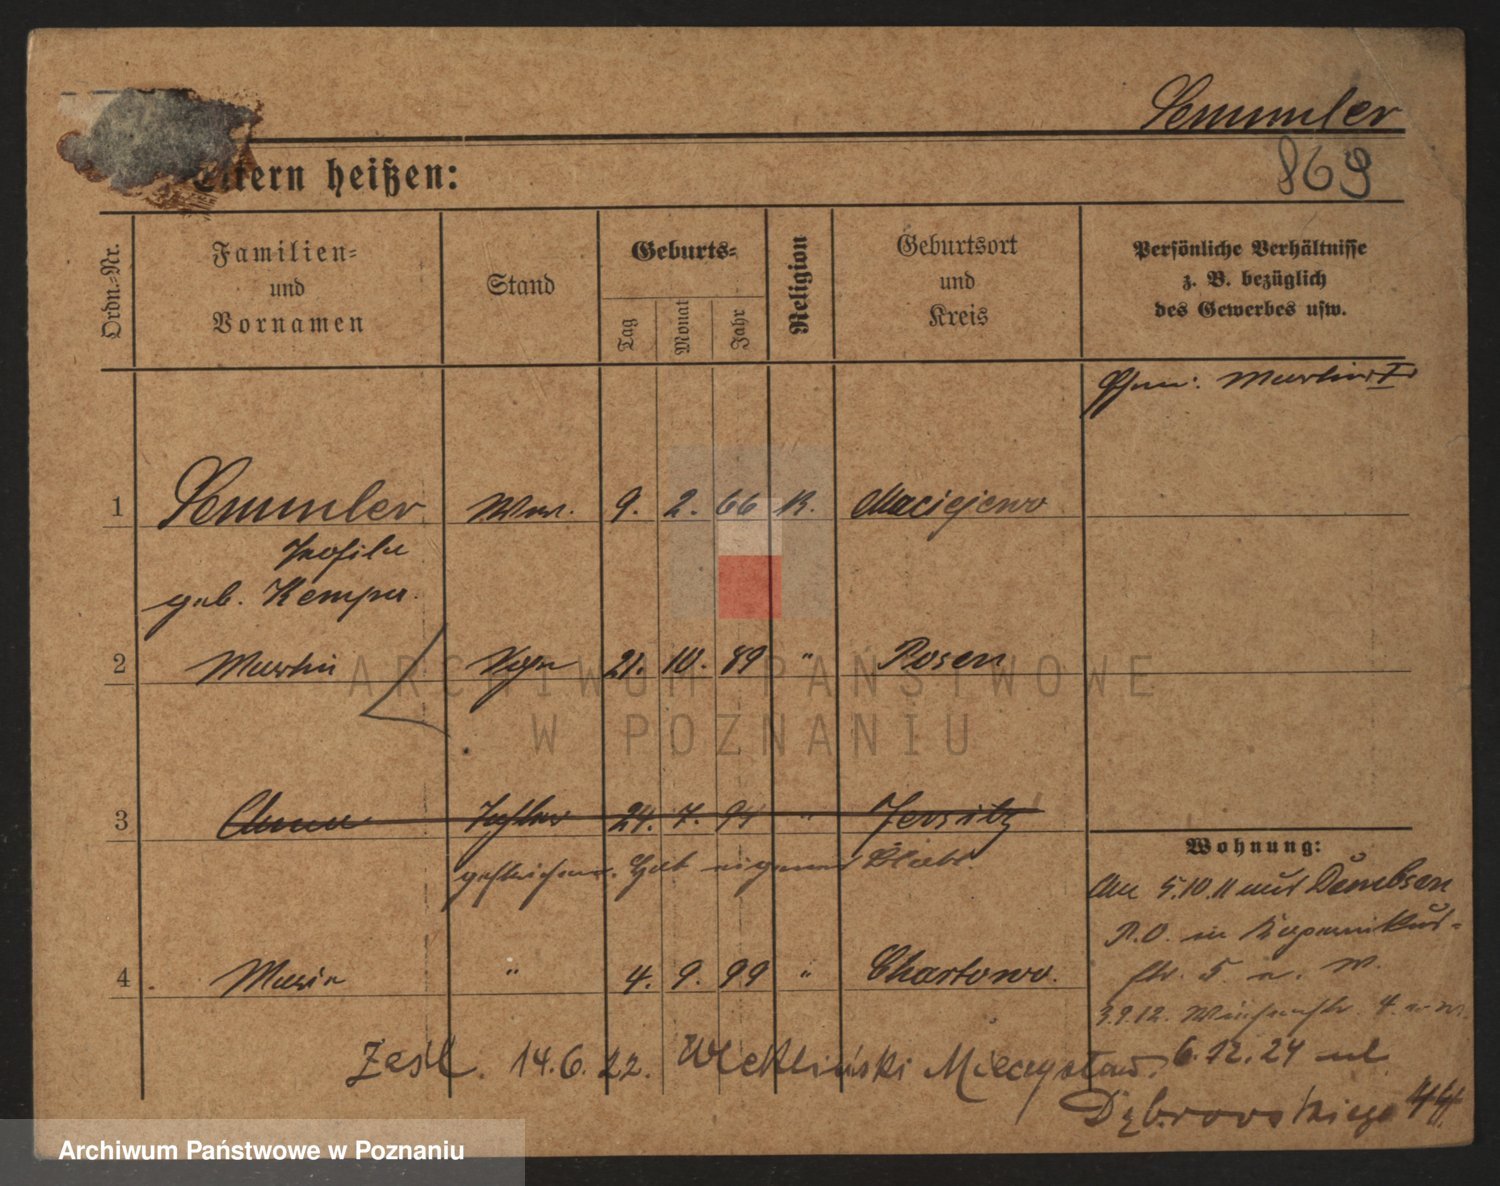 Semmler
869
Eltern heißen:
Ordn.-Nr.
Familien-
und
Vornamen
Stand
Geburts-
Tag
Monat
Jahr
Religion
Geburtsort
und
Kreis
Persönliche Verhältnisse
z. B. bezüglich
des Gewerbes usw.
Martin
1 Semmler 9. 2. 66 K. Maciejewo
geb.
2 Martin 21. 10. 89 " Posen
3 Anna Tochter 24. 7. 94 " Jersitz
gestrichen. Hat eigenes Blatt.
Wohnung:
5.10.11 Dembsen
P.O. in
str. 5
4 Maria " 4. 9. 99 " Chartowo.
3.9.12. 4.
14.6.22. Mieczysław. 6.12.24 ul.
Dąbrowskiego 44
ARCHIWUM PAŃSTWOWE
W POZNANIU
Archiwum Państwowe w Poznaniu